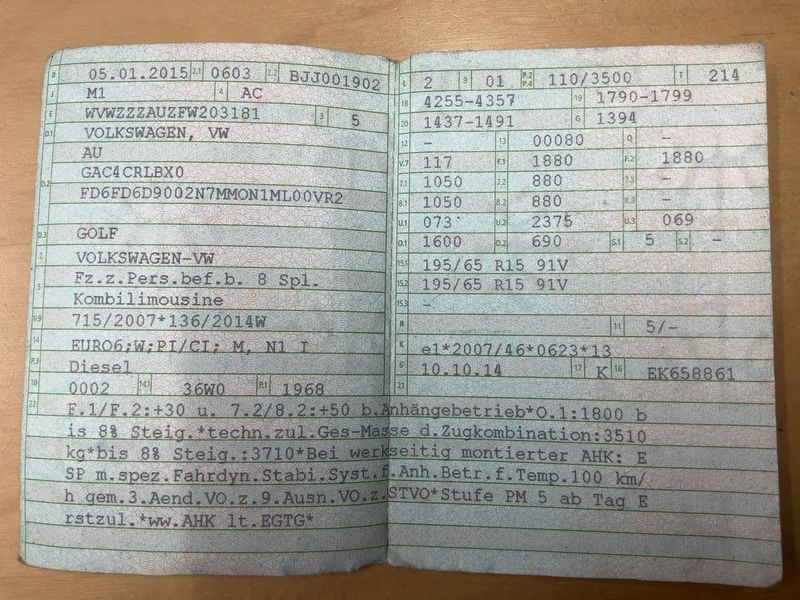 B 05.01.2015 2.1 0603 2.2 BJJ001902
J M1 4 AC
E WVWZZZAUZFW203181 3 5
D.1 VOLKSWAGEN, VW
AU
D.2 GAC4CRLBX0
FD6FD6D9002N7MMON1ML00VR2
D.3 GOLF
2 VOLKSWAGEN-VW
5 Fz.z.Pers.bef.b. 8 Spl.
Kombilimousine
V.9 715/2007*136/2014W
14 EURO6;W;PI/CI; M, N1 I
P.3 Diesel
10 0002 14.1 36W0 P.1 1968
L 2 9 01 P.2 P.4 110/3500 T 214
18 4255-4357 19 1790-1799
20 1437-1491 G 1394
12 - 13 00080 Q -
V.7 117 F.1 1880 F.2 1880
7.1 1050 7.2 880 7.3 -
8.1 1050 8.2 880 8.3 -
U.1 073 U.2 2375 U.3 069
O.1 1600 O.2 690 S.1 5 S.2 -
15.1 195/65 R15 91V
15.2 195/65 R15 91V
15.3 -
R 11 5/-
K e1*2007/46*0623*13
6 10.10.14 17 K 16 EK658861
21
22 F.1/F.2:+30 u. 7.2/8.2:+50 b.Anhängebetrieb*O.1:1800 b
is 8% Steig.*techn.zul.Ges-Masse d.Zugkombination:3510
kg*bis 8% Steig.:3710*Bei werkseitig montierter AHK: E
SP m.spez.Fahrdyn.Stabi.Syst.f.Anh.Betr.f.Temp.100 km/
h gem.3.Aend.VO.z.9.Ausn.VO.z.STVO*Stufe PM 5 ab Tag E
rstzul.*ww.AHK lt.EGTG*